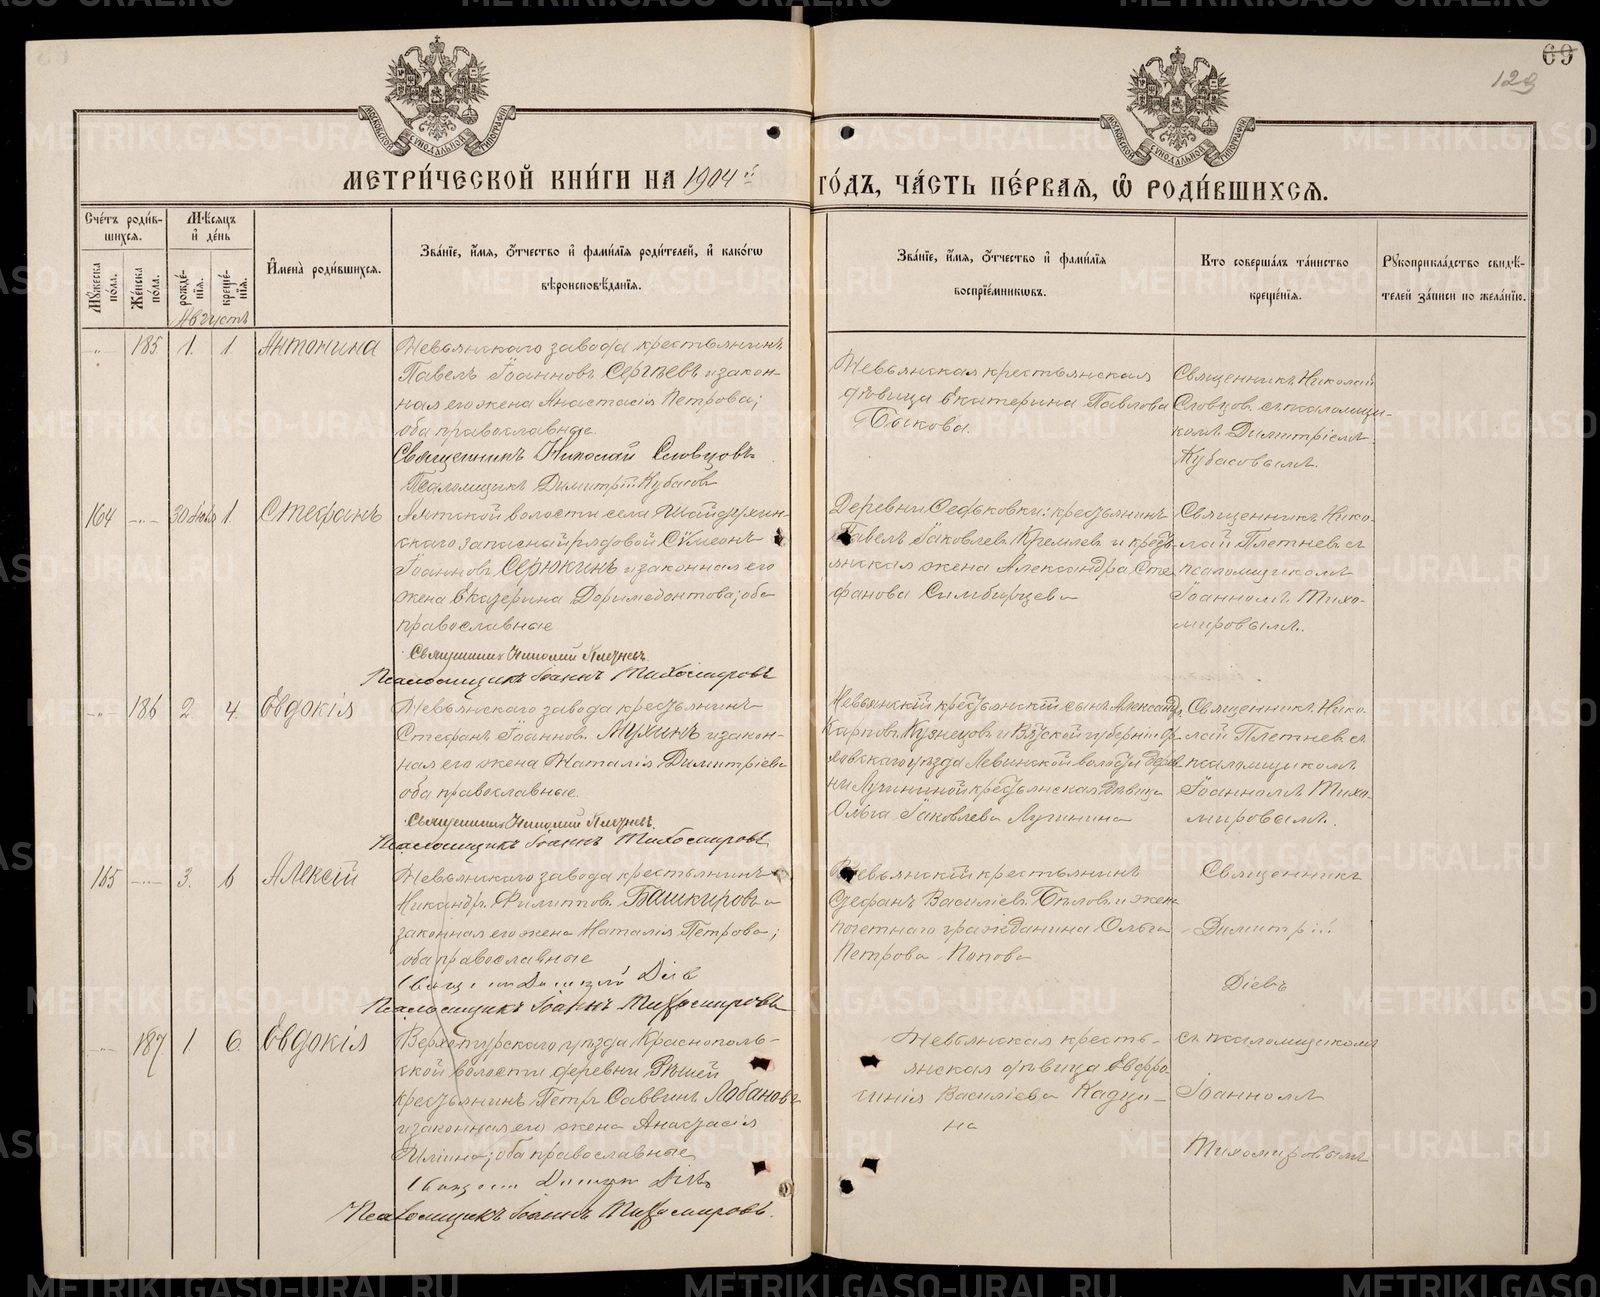 69
129
МОСКОВСКОЙ СѴНОДАЛЬНОЙ ТИПОГРАФІИ
МОСКОВСКОЙ СѴНОДАЛЬНОЙ ТИПОГРАФІИ
МЕТРИ́ЧЕСКОЙ КНИ́ГИ НА 1904 й ГО́ДЪ, ЧА́СТЬ ПЕ́РВАЯ, Ѡ҆ РОДИ́ВШИХСЯ.
Сче́тъ роди́в-
шихся.
Мꙋ́жеска по́ла.
Же́нска по́ла.
Мѣ́сяцъ
и҆ де́нь
рожде́-
нїя.
креще́-
нїя.
Августъ
И҆мена̀ роди́вшихся.
Зва́нїе, и҆́мя, ѻ҆́тчество и҆ фами́лїя роди́телей, и҆ како́гѡ
вѣроисповѣ́данїя.
Зва́нїе, и҆́мя, ѻ҆́тчество и҆ фами́лїя
воспрїе́мникѡвъ.
Кто соверша́лъ та́инство
креще́нїя.
Рꙋкоприкла́дство свидѣ́-
телей за́писи по жела́нїю.
185 1. 1. Антонина
Невьянскаго завода крестьянинъ
Павелъ Іоанновъ Сергѣевъ и закон-
ная его жена Анастасія Петрова;
оба православные.
Священникъ Николай Словцовъ
Псаломщикъ Димитрій Кубасовъ
Невьянская крестьянская
дѣвица Екатерина Павлова
Бокова.
Священникъ Николай
Словцовъ съ псаломщи-
комъ Димитріемъ
Кубасовымъ.
164 30 Іюля 1. Стефанъ
Аятской волости села Шайдурихин-
скаго запасный рядовой Сѵмеонъ
Іоанновъ Серюкинъ и законная его
жена Екатерина Доримедонтова; оба
православные
Священникъ Николай Плетневъ.
Псаломщикъ Іоаннъ Тихомировъ
Деревни Федьковки: крестьянинъ
Павелъ Іаковлевъ Кремлевъ и кресть-
янская жена Александра Сте
фанова Симбирцева
Священникъ Нико-
лай Плетневъ съ
псаломщикомъ
Іоанномъ Тихо-
мировымъ.
186 2 4. Евдокія
Невьянскаго завода крестьянинъ
Стефанъ Іоанновъ Мухинъ и закон-
ная его жена Наталія Димитріева
оба православные.
Священникъ Николай Плетневъ.
Псаломщикъ Іоаннъ Тихомировъ
Невьянскій крестьянскій сынъ Александръ
Карповъ Кузнецовъ и Вятской губерніи Ор-
ловскаго уѣзда Левинской волости дерев-
ни Лучининой крестьянская дѣвица
Ольга Іаковлева Лучинина
Священникъ Нико-
лай Плетневъ съ
псаломщикомъ
Іоанномъ Тихо-
мировымъ.
165 3. 6 Алексій
Невьянскаго завода крестьянинъ
Никандръ Филипповъ Башкировъ и
законная его жена Наталія Петрова;
оба православные
Священникъ Димитрій Діевъ
Псаломщикъ Іоаннъ Тихомировъ
Невьянскій крестьянинъ
Стефанъ Василіевъ Бѣловъ и жена
почетнаго гражданина Ольга
Петрова Попова
Священникъ
Димитрій
Діевъ
187 1. 6. Евдокія
Верхотурскаго уѣзда Краснополь-
ской волости деревни
крестьянинъ Петръ Саввинъ Лобановъ
и законная его жена Анастасія
Иліина; оба православные
Священникъ Димитрій Діевъ
Псаломщикъ Іоаннъ Тихомировъ.
Невьянская кресть-
янская дѣвица Евфро
синія Василіева Кадци-
на
съ псаломщикомъ
Іоанномъ
Тихомировымъ